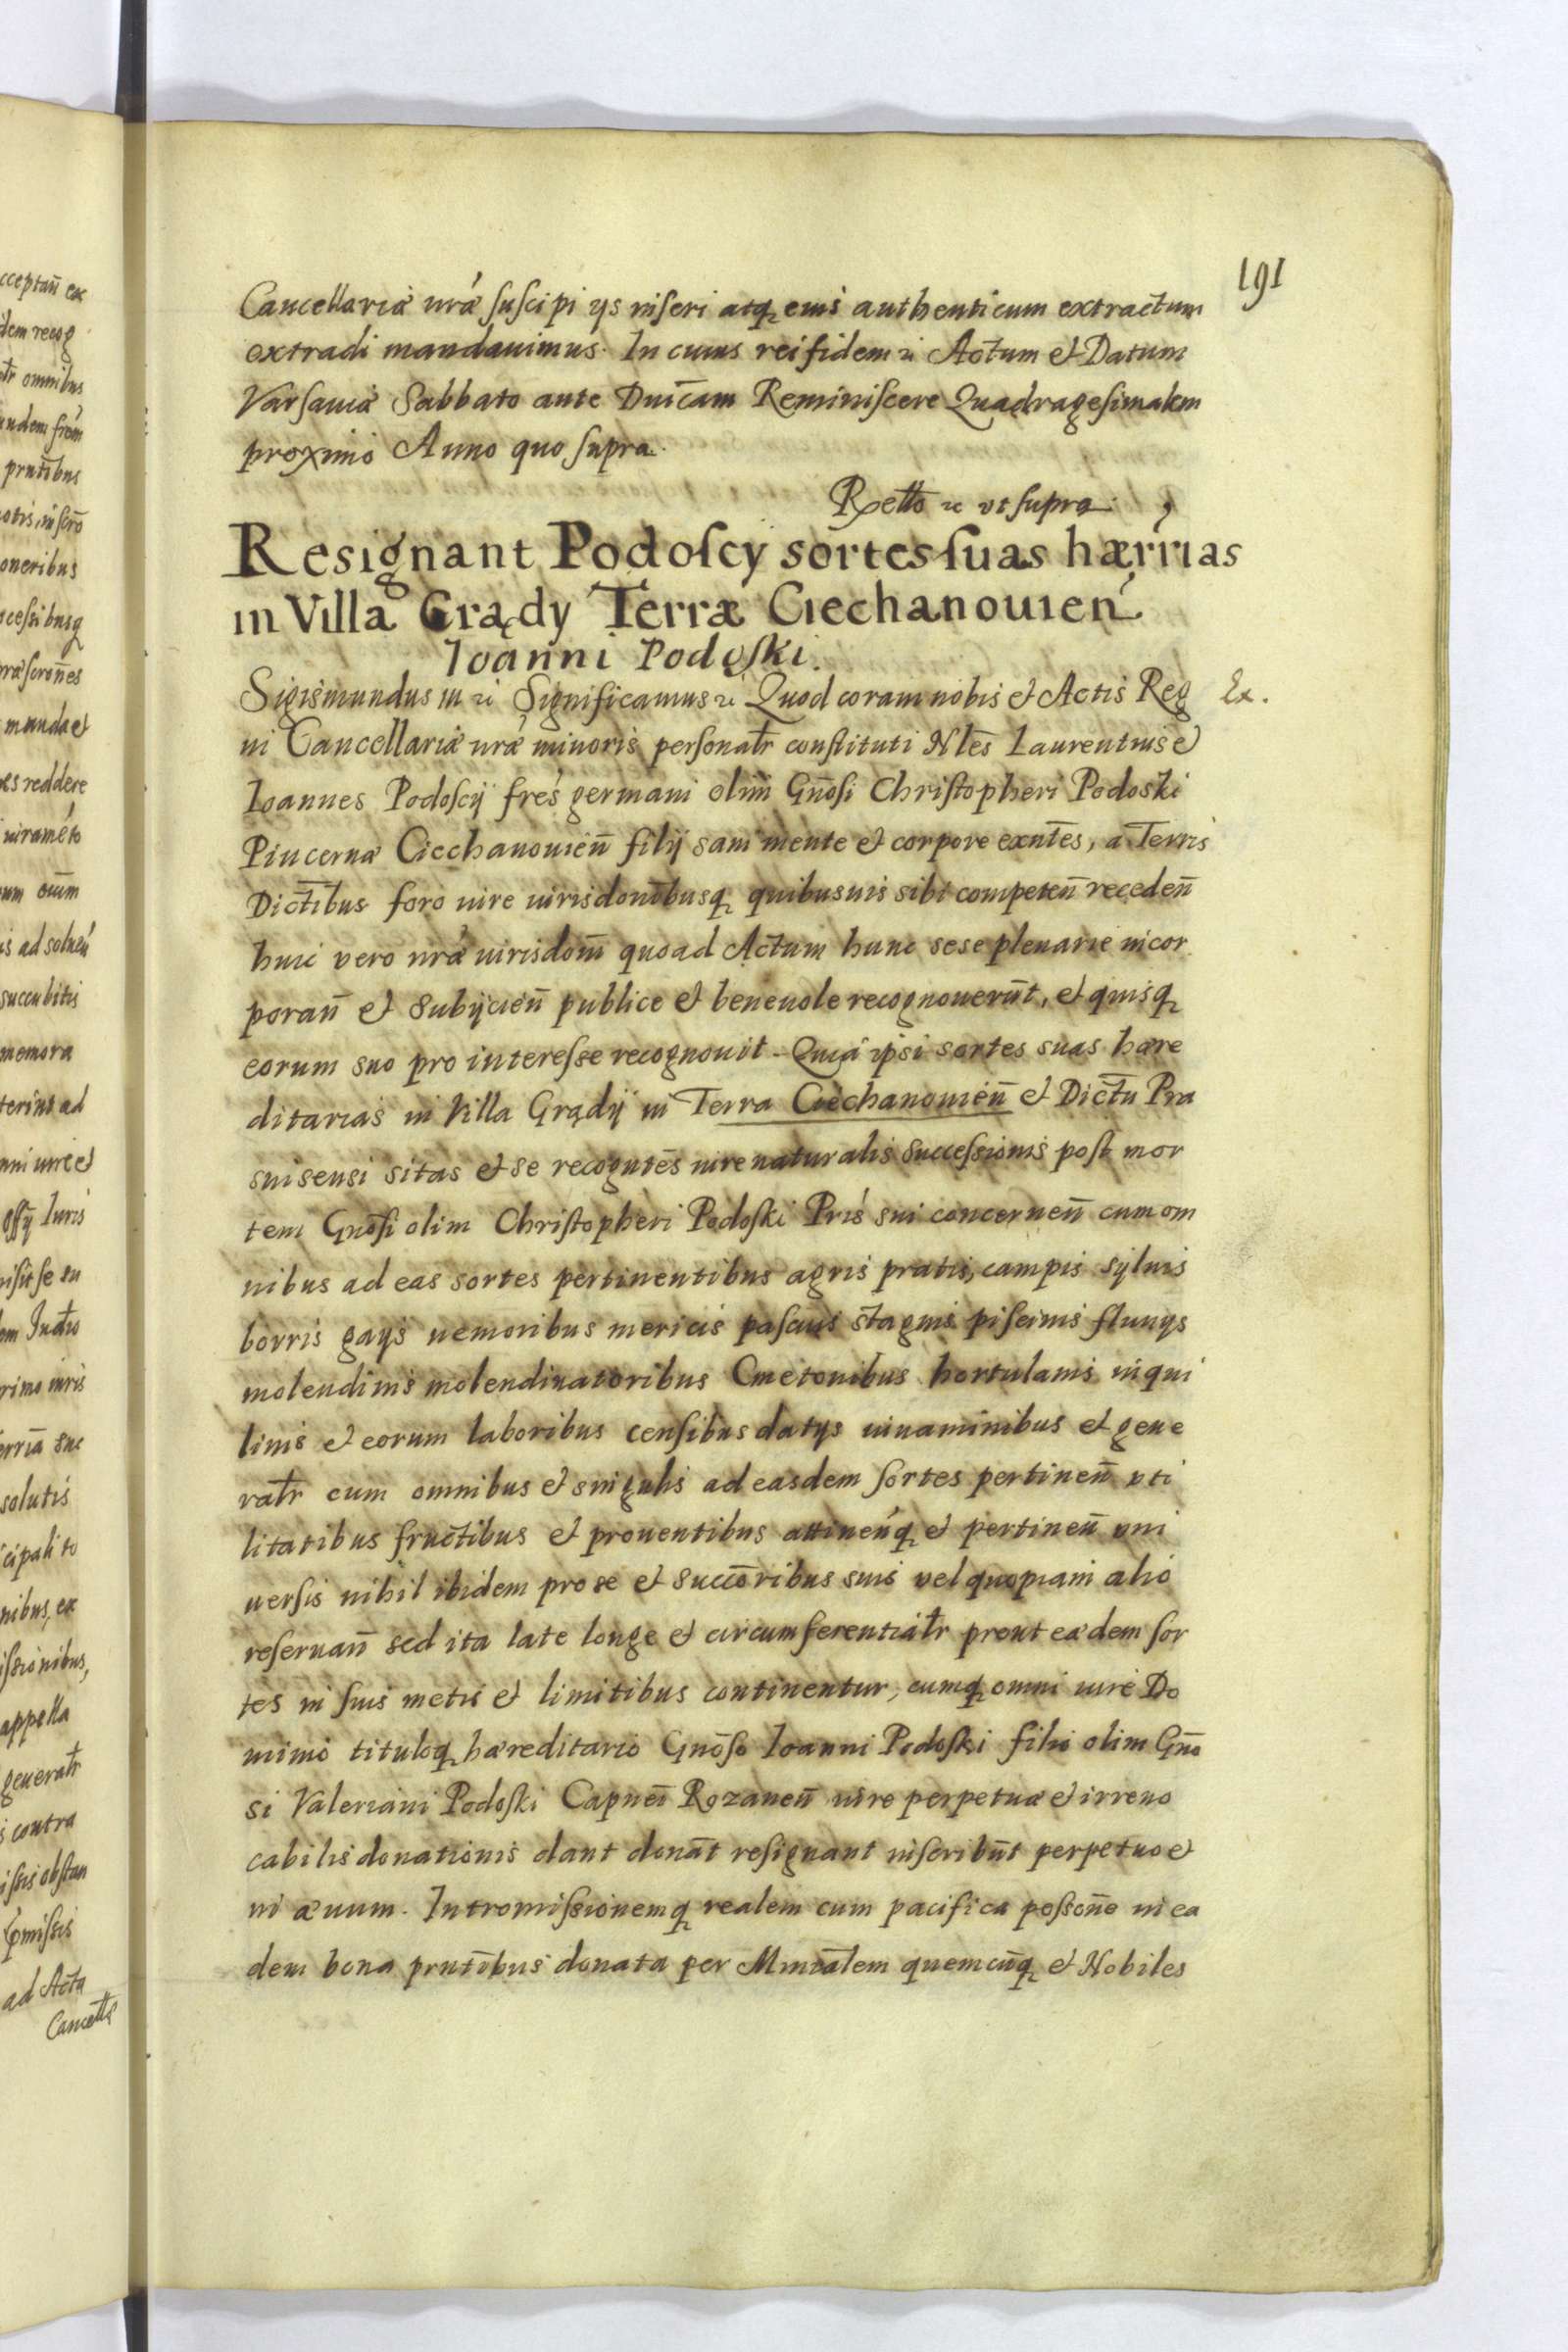 191
Cancellariæ nr̃æ suscipi ijs inseri atq̃ eius authenticum extractum
extradi mandauimus. In cuius rei fidem &c Actum et Datum
Varsauiæ Sabbato ante Dnicam Reminiscere Quadragesimalem
proximo Anno quo supra.
Rptto &c vt supra.
Resignant Podoscy sortes suas hærrias
in Villa Grądy Terræ Ciechanouien
Ioanni Podoski.
Sigismundus III &c Significamus &c Quod coram nobis et Actis Reg
ni Cancellariæ nr̃æ minoris personalr̃ constituti Nlẽs Laurentius et
Ioannes Podoscij frẽs germani olim Gñosi Christopheri Podoski
Pincernæ Ciechanouieñ filij sani mente et corpore exñtes, a Terris
Dictibus foro iure iurisdonibusq̃ quibusuis sibi competeñ recedeñ
huic vero nr̃æ iurisdom̃ quoad Actum hunc sese plenarie incor
porañ et subijcieñ publice et beneuole recognouerũt, et quisq̃
eorum suo pro interesse recognouit. Quia ipsi sortes suas hære
ditarias in Villa Grądij in Terra Ciechanouieñ et Dictu Pra
snisensi sitas et se recogntẽs iure naturalis successionis post mor
tem Gñosi olim Christopheri Podoski Pris sui concerneñ cum om
nibus ad eas sortes pertinentibus agris pratis, campis syluis
borris gays nemoribus mericis pascuis stagnis piscinis fluuijs
molendinis molendinatoribus Cmetonibus hortulanis inqui
linis et eorum laboribus censibus datijs iuuaminibus et gene
ralr̃ cum omnibus et singulis ad easdem sortes pertineñ vti
litatibus fructibus et prouentibus attineñq̃ et pertineñ vni
uersis nihil ibidem pro se et succõribus suis vel quopiam alio
reseruañ sed ita late longe et circumferentialr̃ prout eædem sor
tes in suis metis et limitibus continentur, cumq̃ omni iure Do
minio tituloq̃ hæreditario Gnõso Ioanni Podoski filio olim Gño
si Valeriani Podoski Capnei Rozaneñ iure perpetuæ et irreuo
cabilis donationis dant donãt resignant inscribũt perpetuo et
in æuum. Intromissionemq̃ realem cum pacifica possoñe in ea
dem bona prntibus donata per Mintãlem quemcũq̃ et Nobiles
Ex.